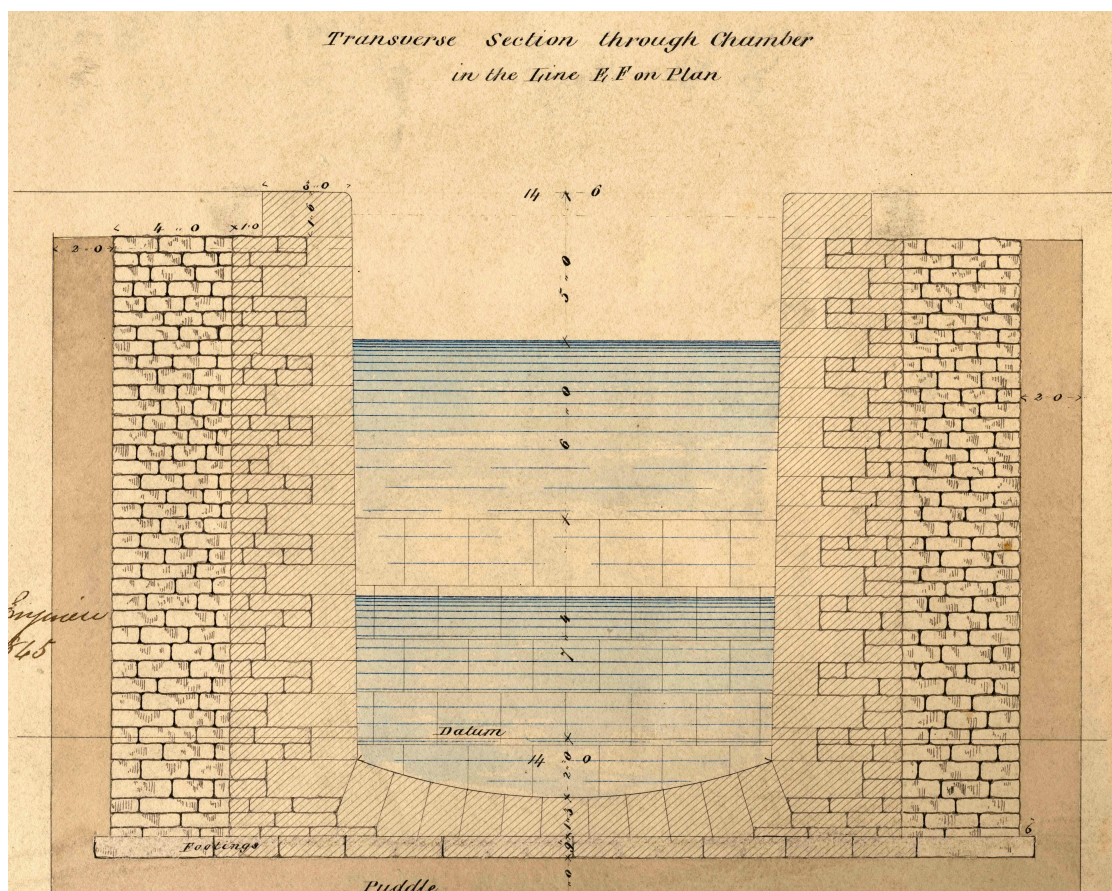 Transverse Section through Chamber
in the Line E, F on Plan
3..0
14 6
1-6
4..0
1.0
2-0
5-0
6-0
2-0
7-4
Datum
14 0
2-0
1-3
6
Footings
9
Puddle